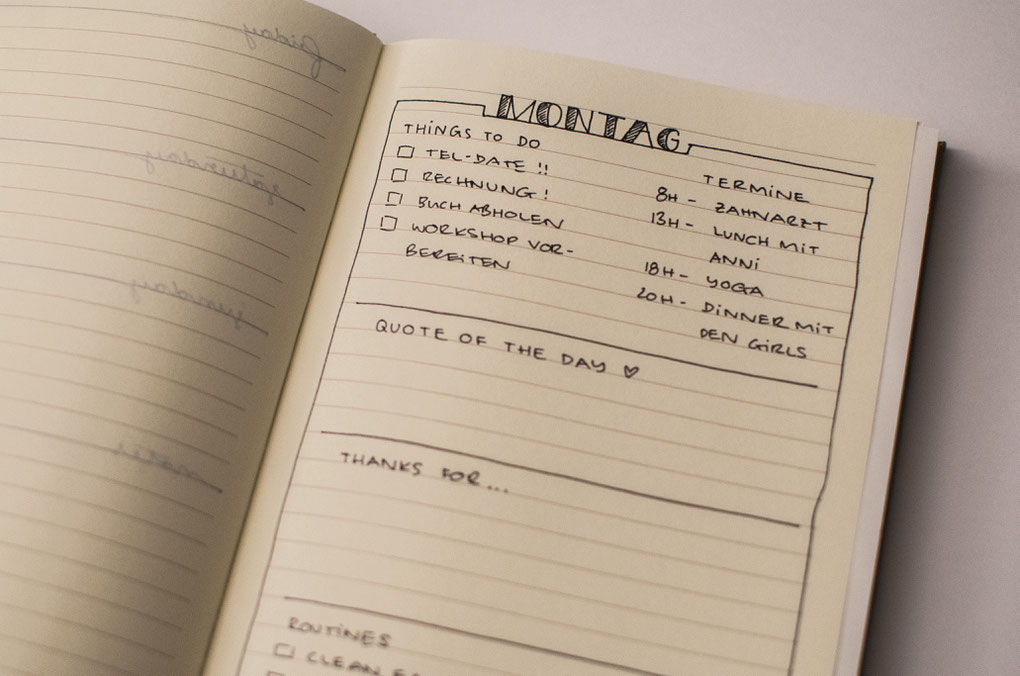 friday
saturday
sunday
notes
MONTAG
THINGS TO DO
TEL-DATE !!
RECHNUNG !
BUCH ABHOLEN
WORKSHOP VOR-
BEREITEN
TERMINE
8H - ZAHNARZT
13H - LUNCH MIT
ANNI
18H - YOGA
20H - DINNER MIT
DEN GIRLS
QUOTE OF THE DAY ♡
THANKS FOR...
ROUTINES
CLEAN